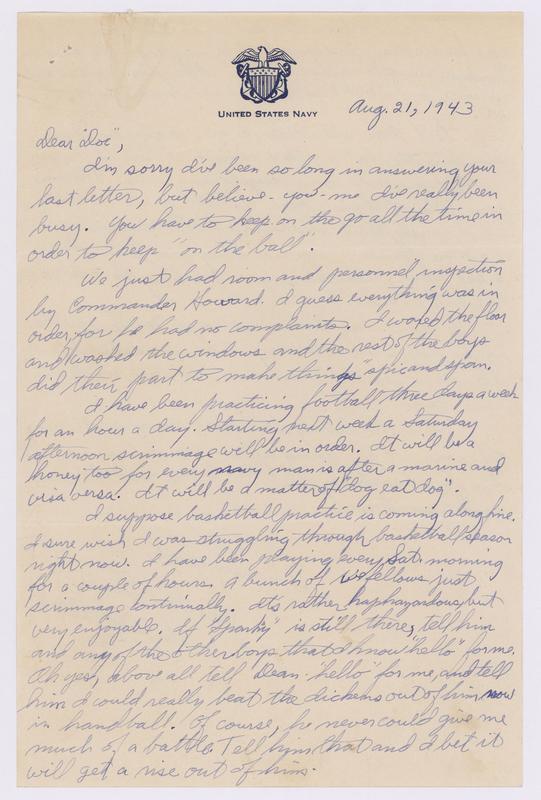 UNITED STATES NAVY
Aug. 21, 1943
Dear "Doc",
I'm sorry I've been so long in answering your
last letter, but believe-you-me I've really been
busy. You have to keep on the go all the time in
order to keep "on the ball".
We just had room and personnel inspection
by Commander Howard. I guess everything was in
order, for he had no complaints. I waxed the floor
and washed the windows and the rest of the boys
did their part to make things "spic and span.
I have been practicing football three days a week
for an hour a day. Starting next week a Saturday
afternoon scrimmage will be in order. It will be a
honey too for every navy man is after a marine and
visa versa. It will be a matter of "dog eat dog".
I suppose basketball practice is coming along fine.
I sure wish I was struggling through basketball season
right now. I have been playing every Sat. morning
for a couple of hours. A bunch of we fellows just
scrimmage continually. It's rather haphazardous, but
very enjoyable. If "Sparky" is still there, tell him
and any of the other boys that I know "hello" for me.
Oh yes, above all tell Dean "hello" for me, and tell
him I could really beat the dickens out of him now
in handball. Of course, he never could give me
much of a battle. Tell him that and I bet it
will get a rise out of him.